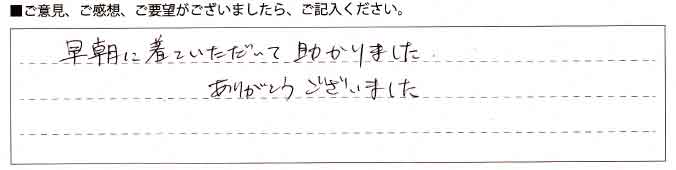 ■ご意見、ご感想、ご要望がございましたら、ご記入ください。
早朝に着ていただいて 助かりました
ありがとうございました